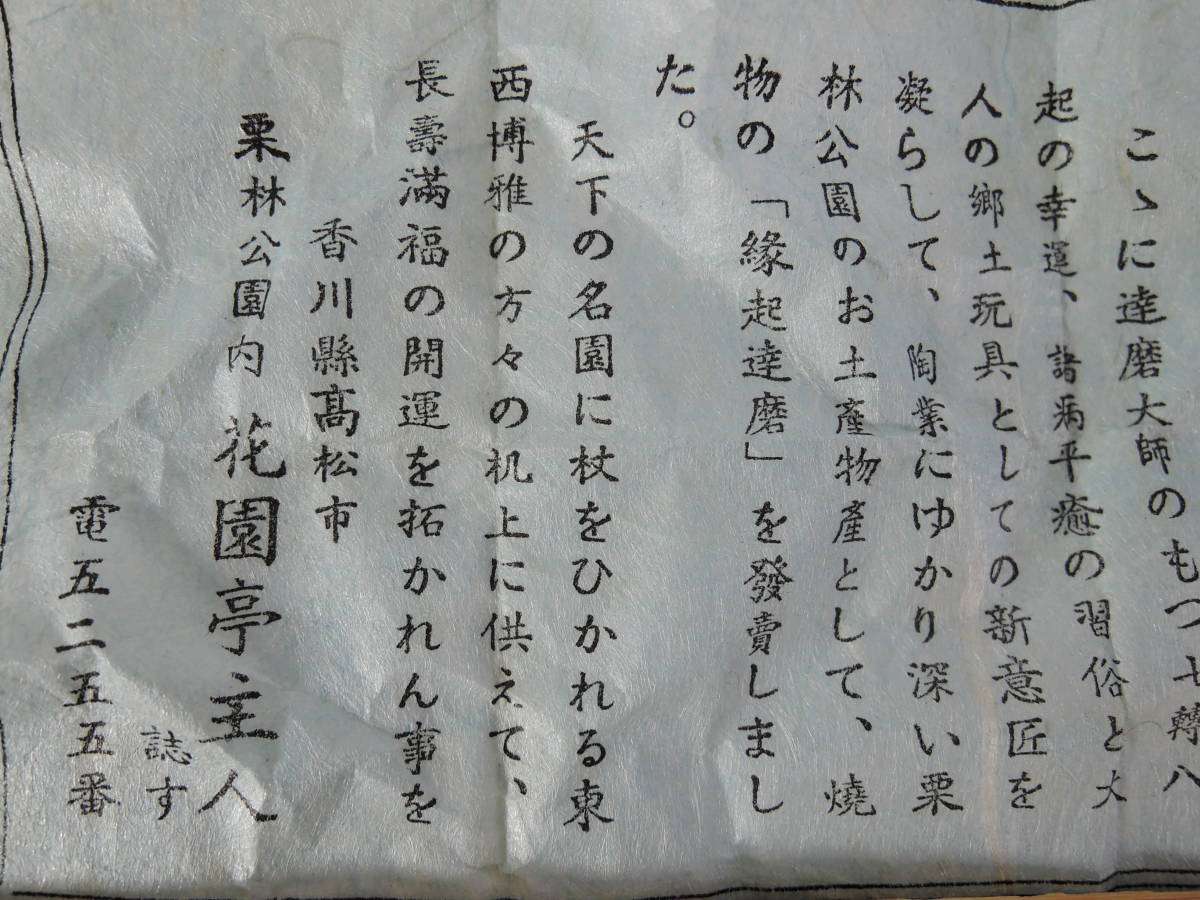 こゝに達磨大師のもつ七轉八
起の幸運、諸病平癒の習俗と大
人の郷土玩具としての新意匠を
凝らして、陶業にゆかり深い栗
林公園のお土産物産として、燒
物の「緣起達磨」を發賣しまし
た。
天下の名園に杖をひかれる東
西博雅の方々の机上に供えて、
長壽滿福の開運を拓かれん事を
香川縣髙松市
栗林公園內 花園亭主人
誌す
電五二五五番